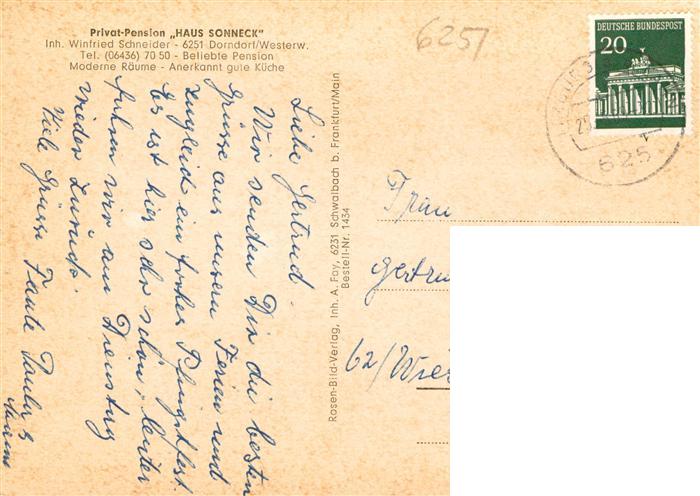 Privat-Pension „HAUS SONNECK"
Inh. Winfried Schneider - 6251 Dorndorf/Westerw.
Tel. (06436) 70 50 - Beliebte Pension
Moderne Räume - Anerkannt gute Küche
6251
DEUTSCHE BUNDESPOST
20
625
Liebe Gertrud.
Wir senden Dir die besten
Grüsse aus unsern Ferien und
zugleich ein frohes Pfingstfest.
Es ist hier sehr schön, leider
fahren wir am Dienstag
wieder zurück.
Viele Grüsse Tante Paula &
Rosen-Bild-Verlag, Inh. A. Fay, 6231 Schwalbach b. Frankfurt/Main
Bestell-Nr. 1434
Frau
Gertru
62/Wie